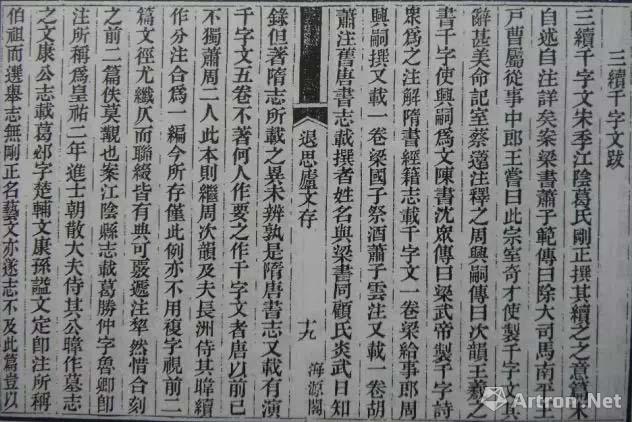 三續千字文跋
三續千字文宋季江陰葛氏剛正撰其續之之意篇末
自述自注詳矣案梁書蕭子範傳曰除大司馬南平王
戸曹屬從事中郎王嘗曰此宗室奇才使製千字文其
辭甚美命記室蔡遠注釋之周興嗣傳曰次韻王羲之
書千字使興嗣爲文陳書沈眾傳曰梁武帝製千字詩
眾爲之注解隋書經籍志載千字文一卷梁給事郎周
興嗣撰又載一卷梁國子祭酒蕭子雲注又載一卷胡
蕭注舊唐書志載撰者姓名與梁書同顧氏炎武日知
退思廬文存 十九 海源閣
錄但著隋志所載之異未辨孰是隋唐書志又載有演
千字文五卷不著何人作要之作千字文者唐以前已
不獨蕭周二人此本則繼周次韻及夫長洲侍其暐續
作分注合爲一編今所存僅此例亦不用複字視前二
篇文徑尤纖仄而聯綴皆有典可覈遞注犂然惜合刻
之前二篇佚莫覯也案江陰縣志載葛勝仲字魯卿卽
注所稱爲皇祐二年進士朝散大夫侍其公暐作墓志
之文康公志載葛邲字楚輔文康孫謚文定卽注所稱
伯祖而選舉志無剛正名藝文亦遂志不及此篇豈以
Artron.Net